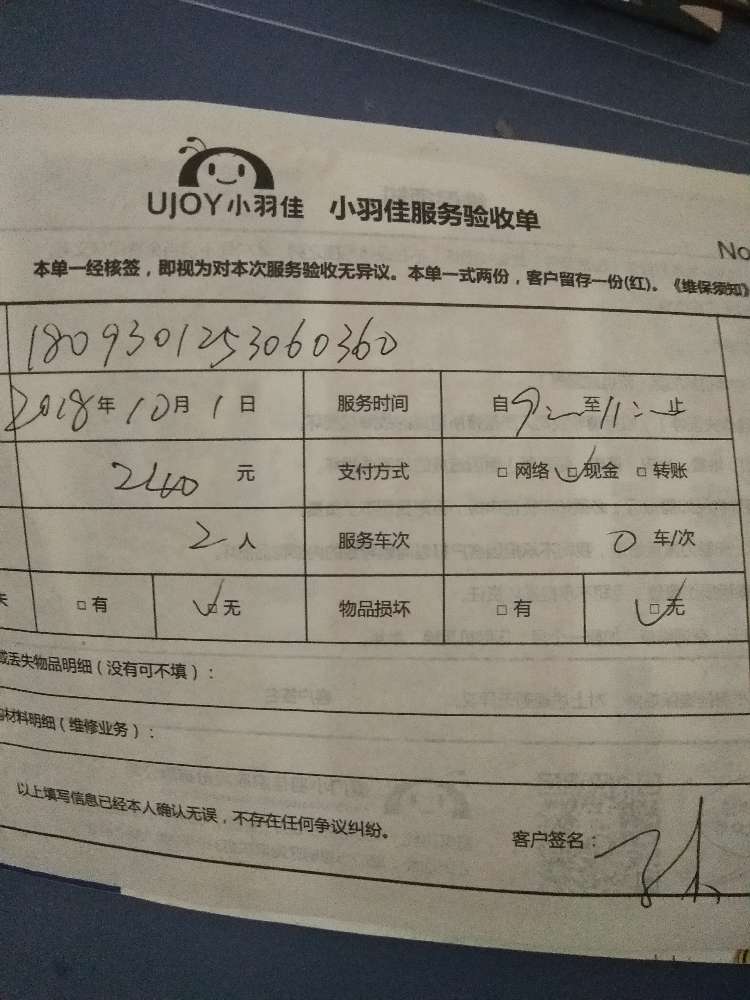 UJOY小羽佳 小羽佳服务验收单
No
本单一经核签，即视为对本次服务验收无异议。本单一式两份，客户留存一份(红)。《维保须知》
1809301253060360
2018年10月1日 服务时间 自9:—至11:—止
240元 支付方式 □网络 ☑现金 □转账
2人 服务车次 0车/次
□有 ☑无 物品损坏 □有 ☑无
或丢失物品明细（没有可不填）：
材料明细（维修业务）：
以上填写信息已经本人确认无误，不存在任何争议纠纷。
客户签名：